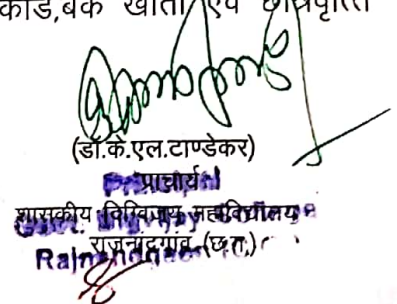 कार्ड,बैंक खाता एवं छात्रवृत्ति
(डॉ.के.एल.टाण्डेकर)
प्राचार्य
शासकीय दिग्विजय महाविद्यालय
राजनांदगांव (छ.ग.)